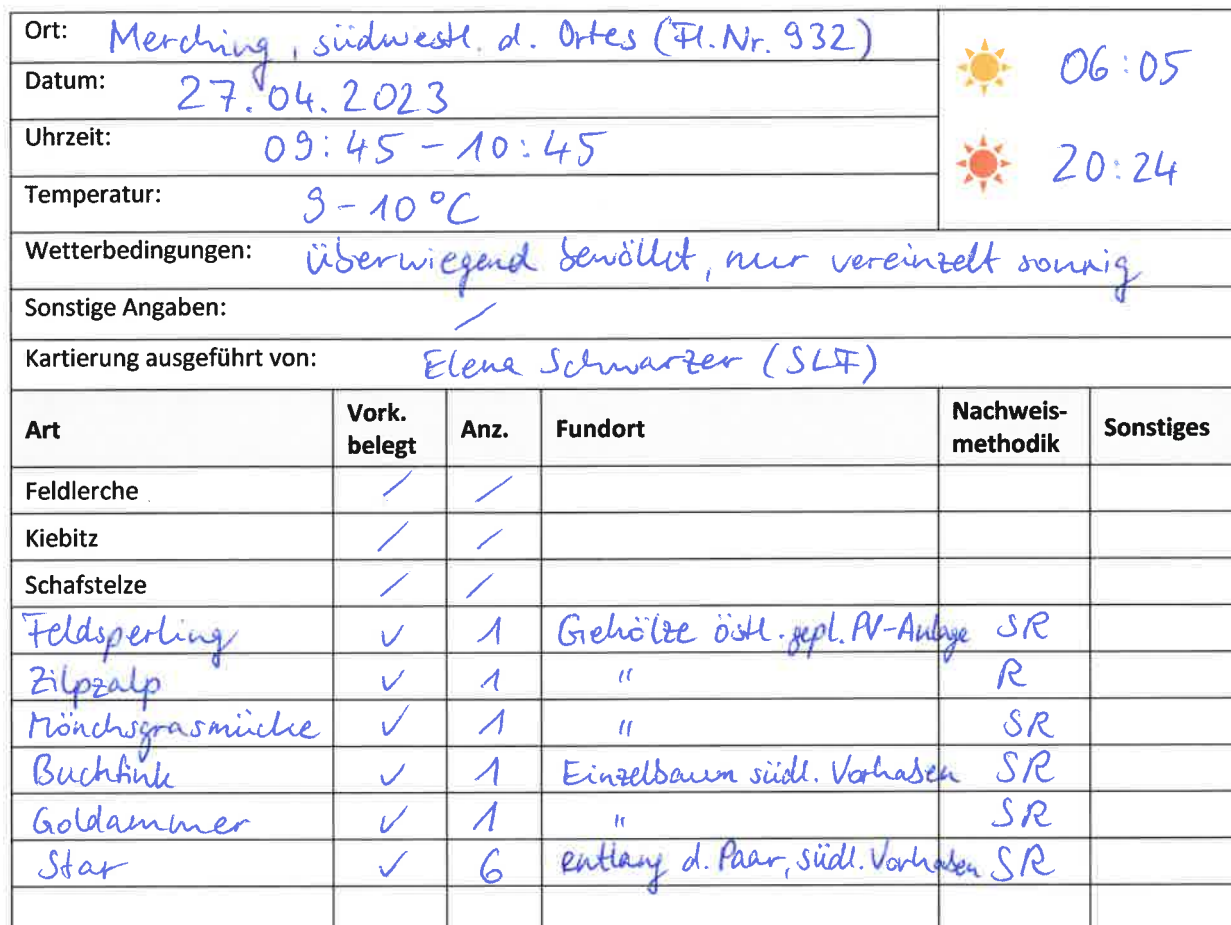 Ort: Merching, südwestl. d. Ortes (Fl.Nr. 932)
06:05
Datum: 27.04.2023
Uhrzeit: 09:45 - 10:45
20:24
Temperatur: 9-10°C
Wetterbedingungen: überwiegend bewölkt, nur vereinzelt sonnig
Sonstige Angaben: /
Kartierung ausgeführt von: Elena Schwarzer (SLF)
Art Vork. belegt Anz. Fundort Nachweis-methodik Sonstiges
Feldlerche / /
Kiebitz / /
Schafstelze / /
Feldsperling ✓ 1 Gehölze östl. gepl. PV-Anlage SR
Zilpzalp ✓ 1 " R
Mönchsgrasmücke ✓ 1 " SR
Buchfink ✓ 1 Einzelbaum südl. Vorhaben SR
Goldammer ✓ 1 " SR
Star ✓ 6 entlang d. Paar, südl. Vorhaben SR